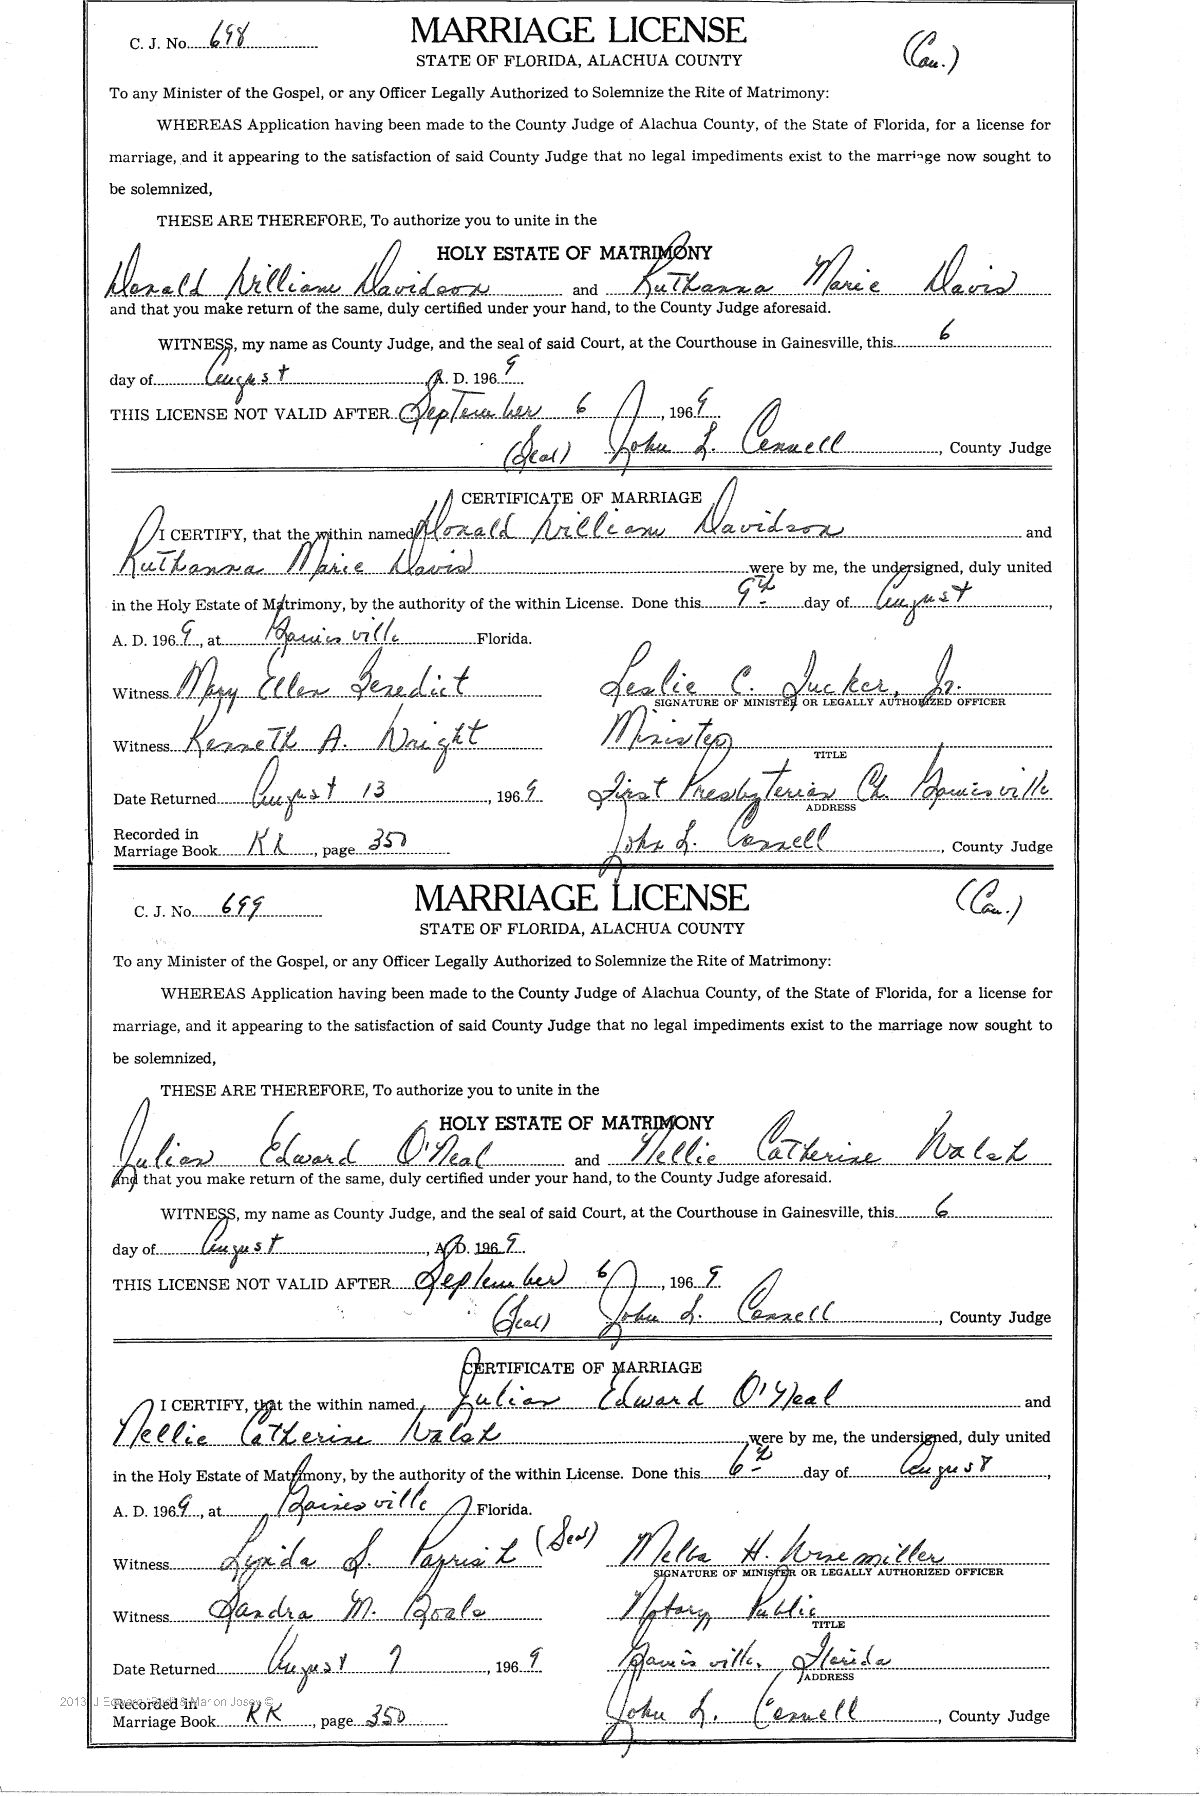 C. J. No. 698
MARRIAGE LICENSE
(Cau.)
STATE OF FLORIDA, ALACHUA COUNTY
To any Minister of the Gospel, or any Officer Legally Authorized to Solemnize the Rite of Matrimony:
WHEREAS Application having been made to the County Judge of Alachua County, of the State of Florida, for a license for
marriage, and it appearing to the satisfaction of said County Judge that no legal impediments exist to the marriage now sought to
be solemnized,
THESE ARE THEREFORE, To authorize you to unite in the
HOLY ESTATE OF MATRIMONY
Donald William Davidson and Ruthanna Marie Davis
and that you make return of the same, duly certified under your hand, to the County Judge aforesaid.
WITNESS, my name as County Judge, and the seal of said Court, at the Courthouse in Gainesville, this 6
day of August A. D. 1969
THIS LICENSE NOT VALID AFTER September 6, 1969
(Seal) John L. Connell, County Judge
CERTIFICATE OF MARRIAGE
I CERTIFY, that the within named Donald William Davidson and
Ruthanna Marie Davis were by me, the undersigned, duly united
in the Holy Estate of Matrimony, by the authority of the within License. Done this 9th day of August,
A. D. 1969, at Gainesville Florida.
Witness Mary Ellen Benedict Leslie C. Tucker, Jr.
SIGNATURE OF MINISTER OR LEGALLY AUTHORIZED OFFICER
Witness Kenneth A. Wright Minister
TITLE
Date Returned August 13, 1969 First Presbyterian Ch. Gainesville
ADDRESS
Recorded in
Marriage Book KK, page 350 John L. Connell, County Judge
C. J. No. 699
MARRIAGE LICENSE
(Cau.)
STATE OF FLORIDA, ALACHUA COUNTY
To any Minister of the Gospel, or any Officer Legally Authorized to Solemnize the Rite of Matrimony:
WHEREAS Application having been made to the County Judge of Alachua County, of the State of Florida, for a license for
marriage, and it appearing to the satisfaction of said County Judge that no legal impediments exist to the marriage now sought to
be solemnized,
THESE ARE THEREFORE, To authorize you to unite in the
HOLY ESTATE OF MATRIMONY
Julian Edward O'Neal and Nellie Catherine Walsh
and that you make return of the same, duly certified under your hand, to the County Judge aforesaid.
WITNESS, my name as County Judge, and the seal of said Court, at the Courthouse in Gainesville, this 6
day of August, A. D. 1969
THIS LICENSE NOT VALID AFTER September 6, 1969
(Seal) John L. Connell, County Judge
CERTIFICATE OF MARRIAGE
I CERTIFY, that the within named Julian Edward O'Neal and
Nellie Catherine Walsh were by me, the undersigned, duly united
in the Holy Estate of Matrimony, by the authority of the within License. Done this 6th day of August,
A. D. 1969, at Gainesville Florida.
Witness Lynda S. Parrish (Seal) Melba H. Wisemiller
SIGNATURE OF MINISTER OR LEGALLY AUTHORIZED OFFICER
Witness Sandra M. Notary Public
TITLE
Date Returned August 7, 1969 Gainesville, Florida
ADDRESS
Recorded in
Marriage Book KK, page 350 John L. Connell, County Judge
2013 J Marion Josey ©